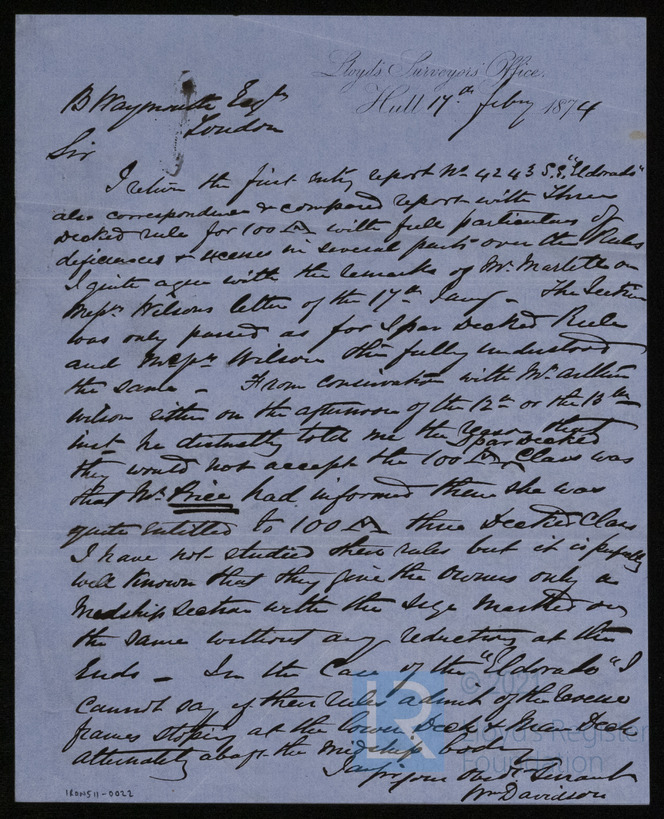 Lloyd's Surveyors' Office.
Hull 17th Feby 1874
B Waymouth Esqr
London
Sir
I return the first entry report No 4243 S.S. "Eldorado"
also correspondence & compared report with Three
Decked rule for 100 A with full particulars of
deficiences & excess in several parts over the Rules
I quite agree with the remarks of Mr. Martell on
Messrs Wilsons letter of the 17th Jany - The Section
was only passed as for Spar Decked Rule
and Messrs Wilson then fully understood
the same - From conversation with Mr. Arthur
Wilson either on the afternoon of the 12th or the 13th
inst he distinctly told me the reason that
they would not accept the 100 A Spar Decked Class was
that Mr. Price had informed them she was
quite entitled to 100 A three Decked Class
I have not studied their rules but it is perfectly
well known that they give the Owners only a
Midship Section with the size marked on
the same without any reduction at the
Ends - In the Case of the "Eldorado" I
cannot say if their rules admit of the reverse
frames stopping at the lower Deck & Main Deck
alternately abaft the midship body
I am Sir your Obedt Servant
Wm Davidson
IRON511-0022
© 2021
LR
Lloyd's Register
Foundation